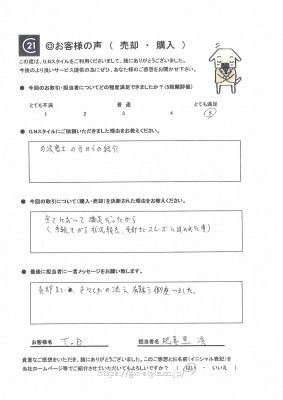 21 ◎お客様の声 ( 売却 ・ 購入 )
この度は、O.Nスタイルをご利用くださいまして、誠にありがとうございました。
今後のより良いサービス提供の為にぜひ、あなた様のご感想をお聞かせ下さい。
● 今回のお取引・担当者についてどの程度満足できましたか?(5段階評価)
とても不満 普通 とても満足
1 2 3 4 5
● O.Nスタイルにご依頼いただきました理由をお教えください。
司法書士の方からの紹介
● 今回の取引について(購入・売却)を決断された理由をお教えください。
全てにおいて満足だったから
● 最後に担当者に一言メッセージをお願い致します。
お客様名 T.D 担当者名
貴重なご感想をいただき、誠にありがとうございました。このご感想とお名前(イニシャル表記)を
当社ホームページ等でご紹介させていただいてもよろしいですか? ( はい ・ いいえ )